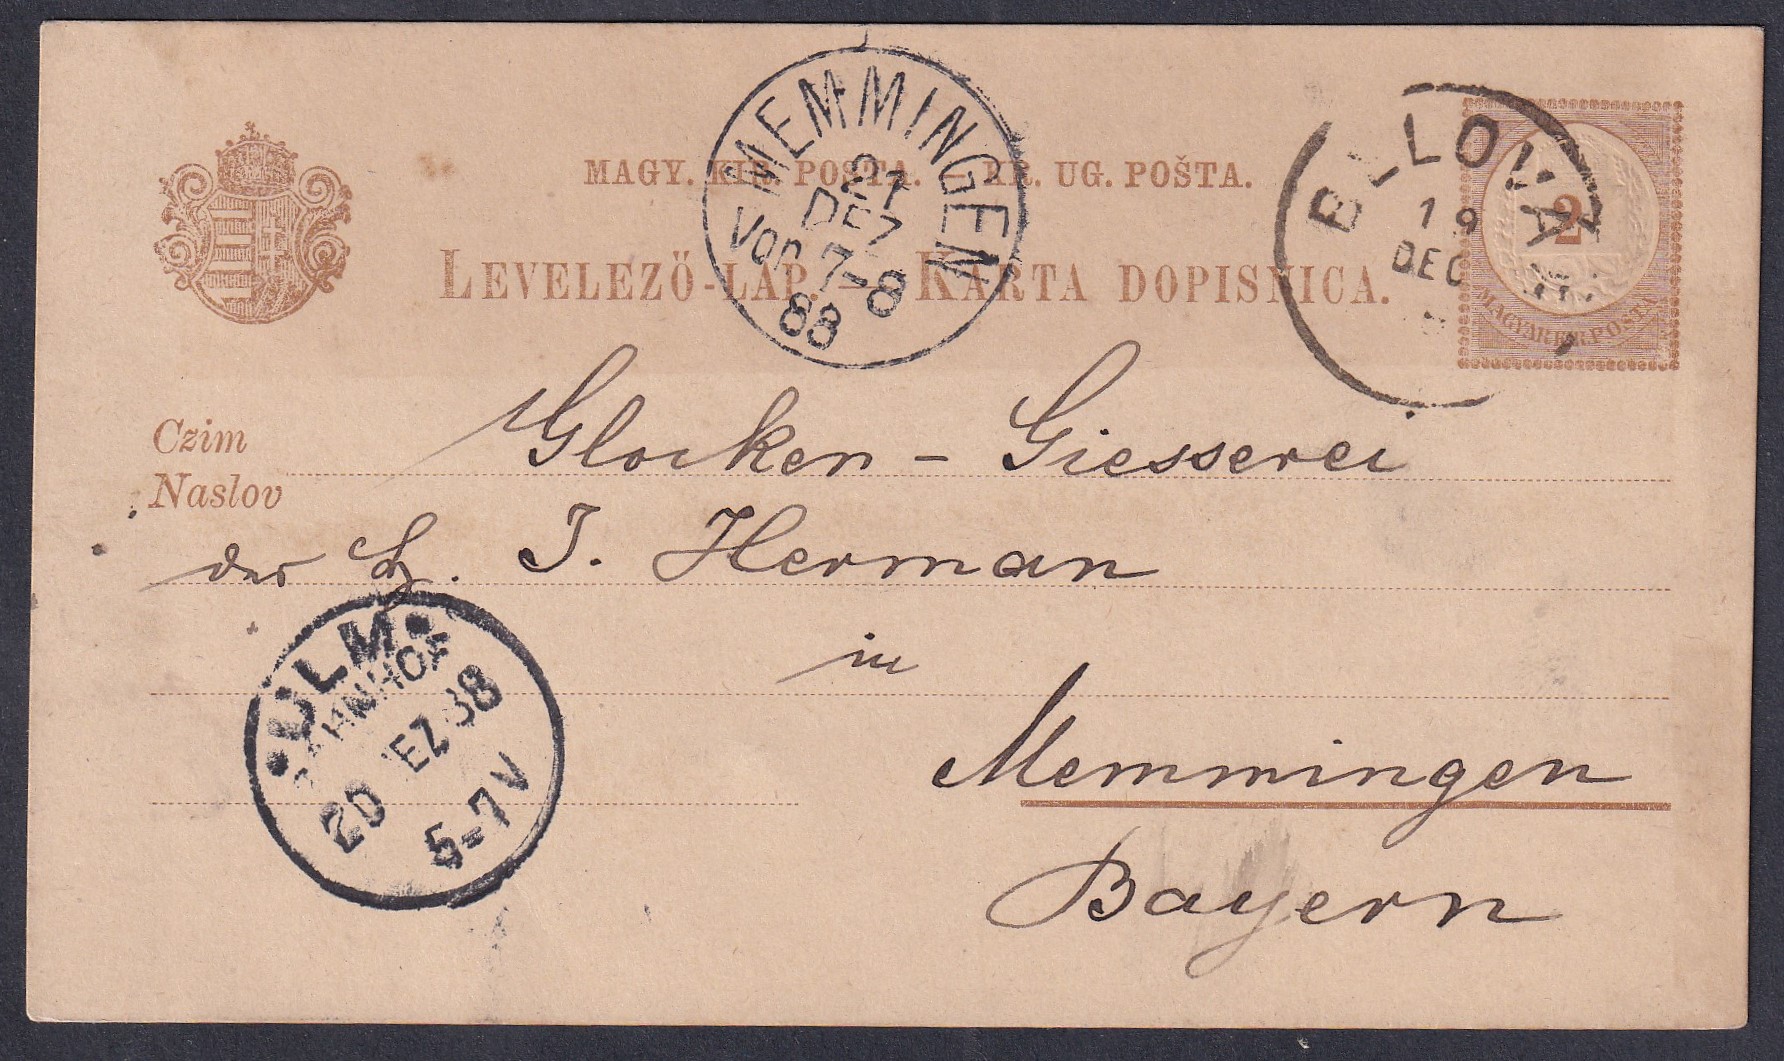 MAGY. KIR. POSTA. — KR. UG. POŠTA.
LEVELEZŐ-LAP. — KARTA DOPISNICA.
MEMMINGEN
21
DEZ
Vor. 7-8
88
BELOVAR
19
DEC
2
MAGYAR KIR. POSTA
Czim
Naslov
Glocken - Giesserei
des H. J. Herman
in
Memmingen
Bayern
ULM
BAHNHOF
20 DEZ 88
5-7 V